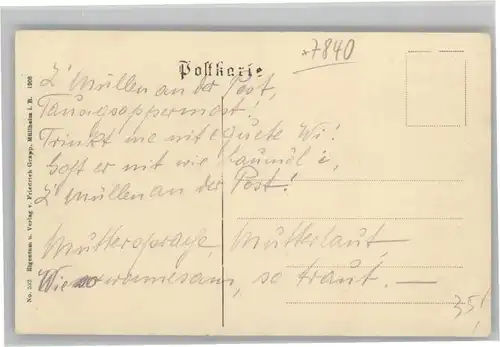 *7840
Postkarte
Z' Müllen an der Post,
Tausigsappermost!
Trinkt me nit e guete Wi!
Goht er nit wie Baumöl i,
Z' Müllen an der Post!
Muttersprache, Mutterlaut,
Wie so wonnesam, so traut. —
35,
No. 592 Eigentum u. Verlag v. Friedrich Grapp, Müllheim i. B. 1908